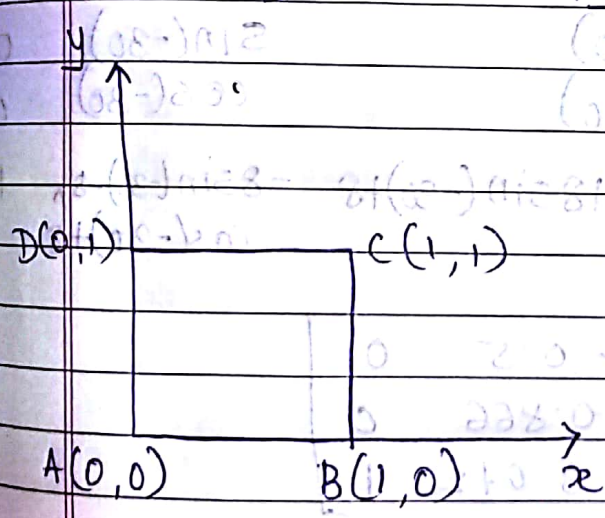 y
D(0,1) C(1,1)
A(0,0) B(1,0) x